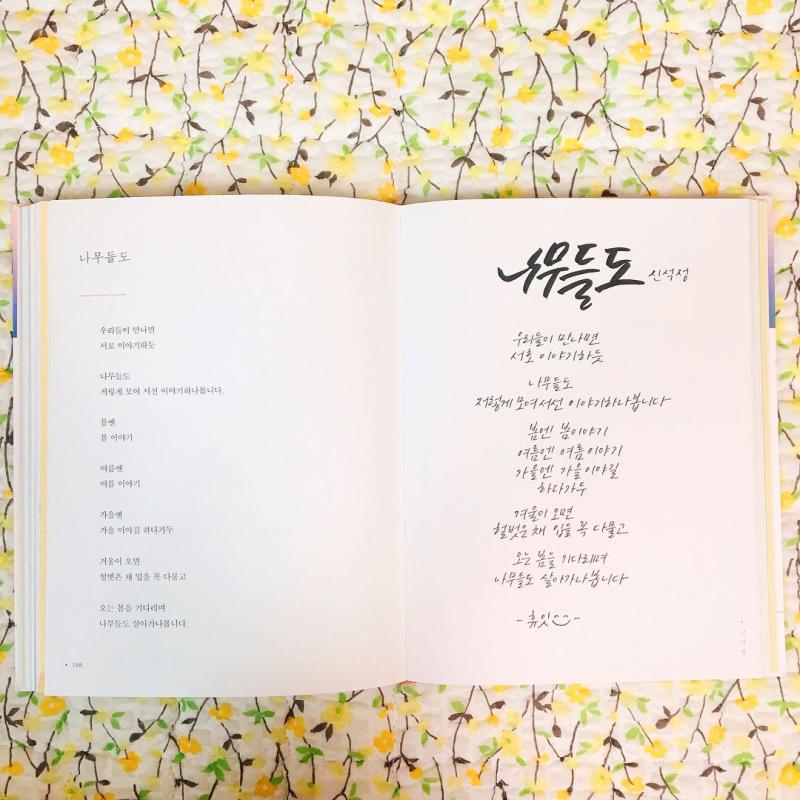 나무들도
우리들이 만나면
서로 이야기하듯
나무들도
저렇게 모여 서선 이야기하나봅니다.
봄엔
봄 이야기
여름엔
여름 이야기
가을엔
가을 이야길 하다가두
겨울이 오면
헐벗은 채 입을 꼭 다물고
오는 봄을 기다리며
나무들도 살아가나봅니다.
• 186
나무들도 신석정
우리들이 만나면
서로 이야기하듯
나무들도
저렇게 모여 서선 이야기하나봅니다
봄엔 봄이야기
여름엔 여름이야기
가을엔 가을이야길
하다가두
겨울이 오면
헐벗은 채 입을 꼭 다물고
오는 봄을 기다리며
나무들도 살아가나봅니다
-휴잇^^-